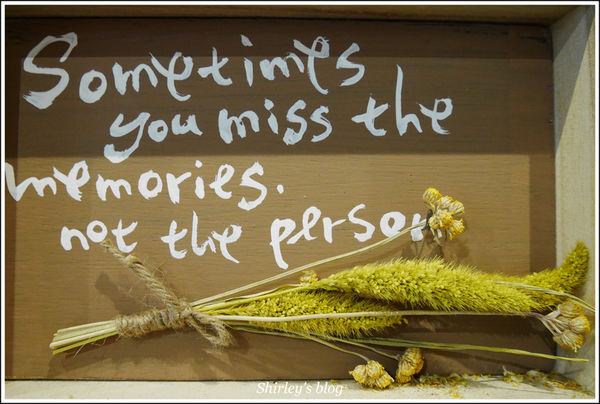 Sometimes
you miss the
memories.
not the person
Shirley's blog